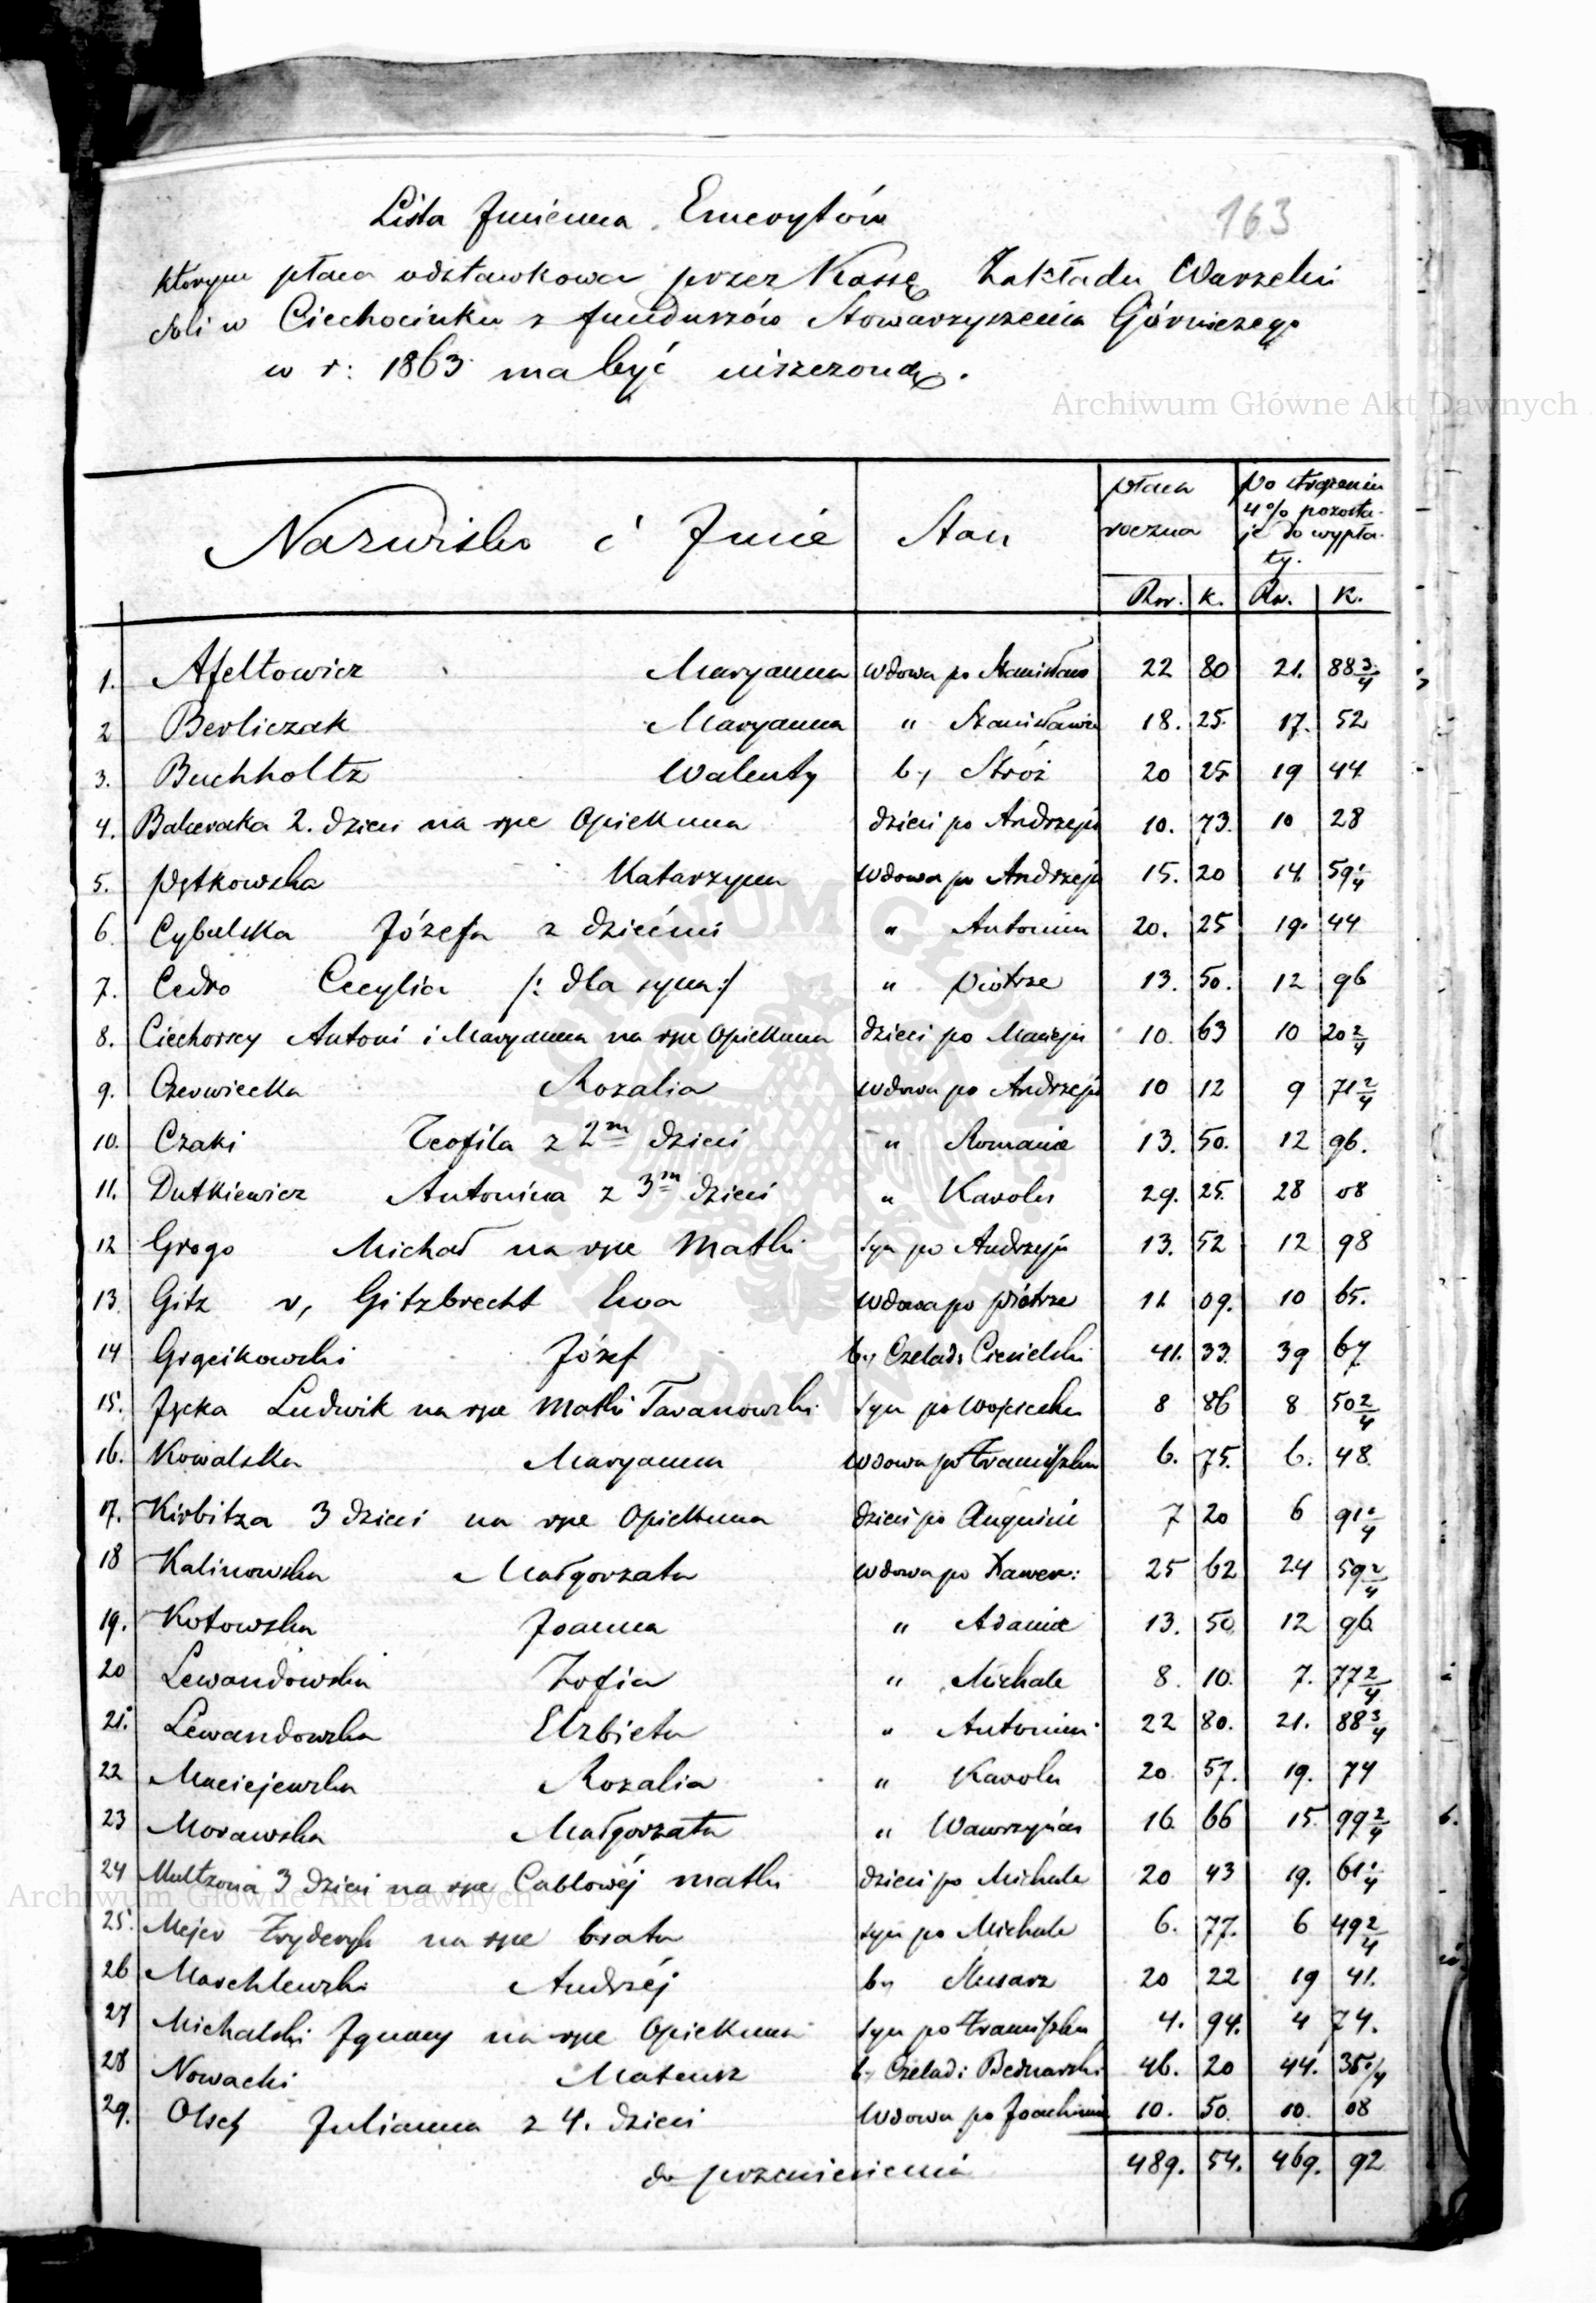 163
Lista Jmienna Emerytów
którym płaca odstawkowa przez Kassę Zakładu Warzelni
Soli w Ciechocinku z funduszów Stowarzyszenia Górniczego
w r: 1863 ma być uiszczoną.
Archiwum Główne Akt Dawnych
Nazwisko i Jmie Stan płaca roczna po strąceniu 4% pozostaje do wypłaty.
Rsr. K. Rs. K.
1. Afeltowicz Maryanna Wdowa po Stanisławie 22 80 21. 88 3/4
2 Berliczak Maryanna " Stanisławie 18. 25. 17. 52
3. Buchholtz Walenty b: Stróż 20 25 19 44
4. 2. dzieci na ręce Opiekuna dzieci po Andrzeju 10. 73. 10 28
5. Pątkowska Katarzyna Wdowa po Andrzeju 15. 20 14. 59 1/4
6. Cybulska Józefa z dziećmi " Antonim 20. 25 19. 44
7. Cedro Cecylia /: dla syna :/ " Piotrze 13. 50. 12 96
8. Ciechorscy Antoni i Maryanna na ręce Opiekuna dzieci po Macieju 10. 63 10 20 2/4
9. Czerwiecka Rozalia Wdowa po Andrzeju 10 12 9 71 2/4
10. Czaki Teofila z 2m dzieci " Romanie 13. 50. 12 96.
11. Dutkiewicz Antonina z 3m dzieci " Karolu 29. 25. 28 08
12 Grogo Michał na ręce Matki syn po Andrzeju 13. 52 12 98
13. Gitz v, Gitzbrecht Ewa Wdowa po Piotrze 11. 09. 10 65.
14 Józef b: Czelad: Ciesielski 41. 33. 39 67
15. Ludwik na ręce Matki Taranowski syn po Wojciechu 8 86 8 50 2/4
16. Kowalska Maryanna Wdowa po Franciszku 6. 75. 6. 48.
17. Kirbitza 3 dzieci na ręce Opiekuna dzieci po Auguście 7 20 6 91 1/4
18 Kalinowska Małgorzata Wdowa po Xawer: 25 62 24 59 2/4
19. Kotowska Joanna " Adamie 13. 50 12 96
20 Lewandowska Zofia " Michale 8. 10. 7. 77 2/4
21. Lewandowska Elżbieta " Antonim 22 80. 21. 88 3/4
22 Maciejewska Rozalia " Karolu 20 57. 19. 74
23 Morawska Małgorzata " Wawrzyńcu 16. 66 15. 99 2/4
24 Multzona 3 dzieci na ręce Cablowéj matki dzieci po Michale 20 43 19. 61 1/4
Archiwum Główne Akt Dawnych
25. Mejer Fryderyk na ręce brata syn po Michale 6. 77. 6 49 2/4
26 Marchlewski Andrzéj b: Ślusarz 20 22 19 41.
27 Michalski Jgnacy na ręce Opiekuna syn po Franciszku 4. 94. 4 74.
28 Nowacki Mateusz b: Czelad: Bednarski 46. 20 44. 35 1/4
29. Julianna z 4. dzieci Wdowa po Joachimie 10. 50. 10. 08
do przeniesienia 489. 54. 469. 92